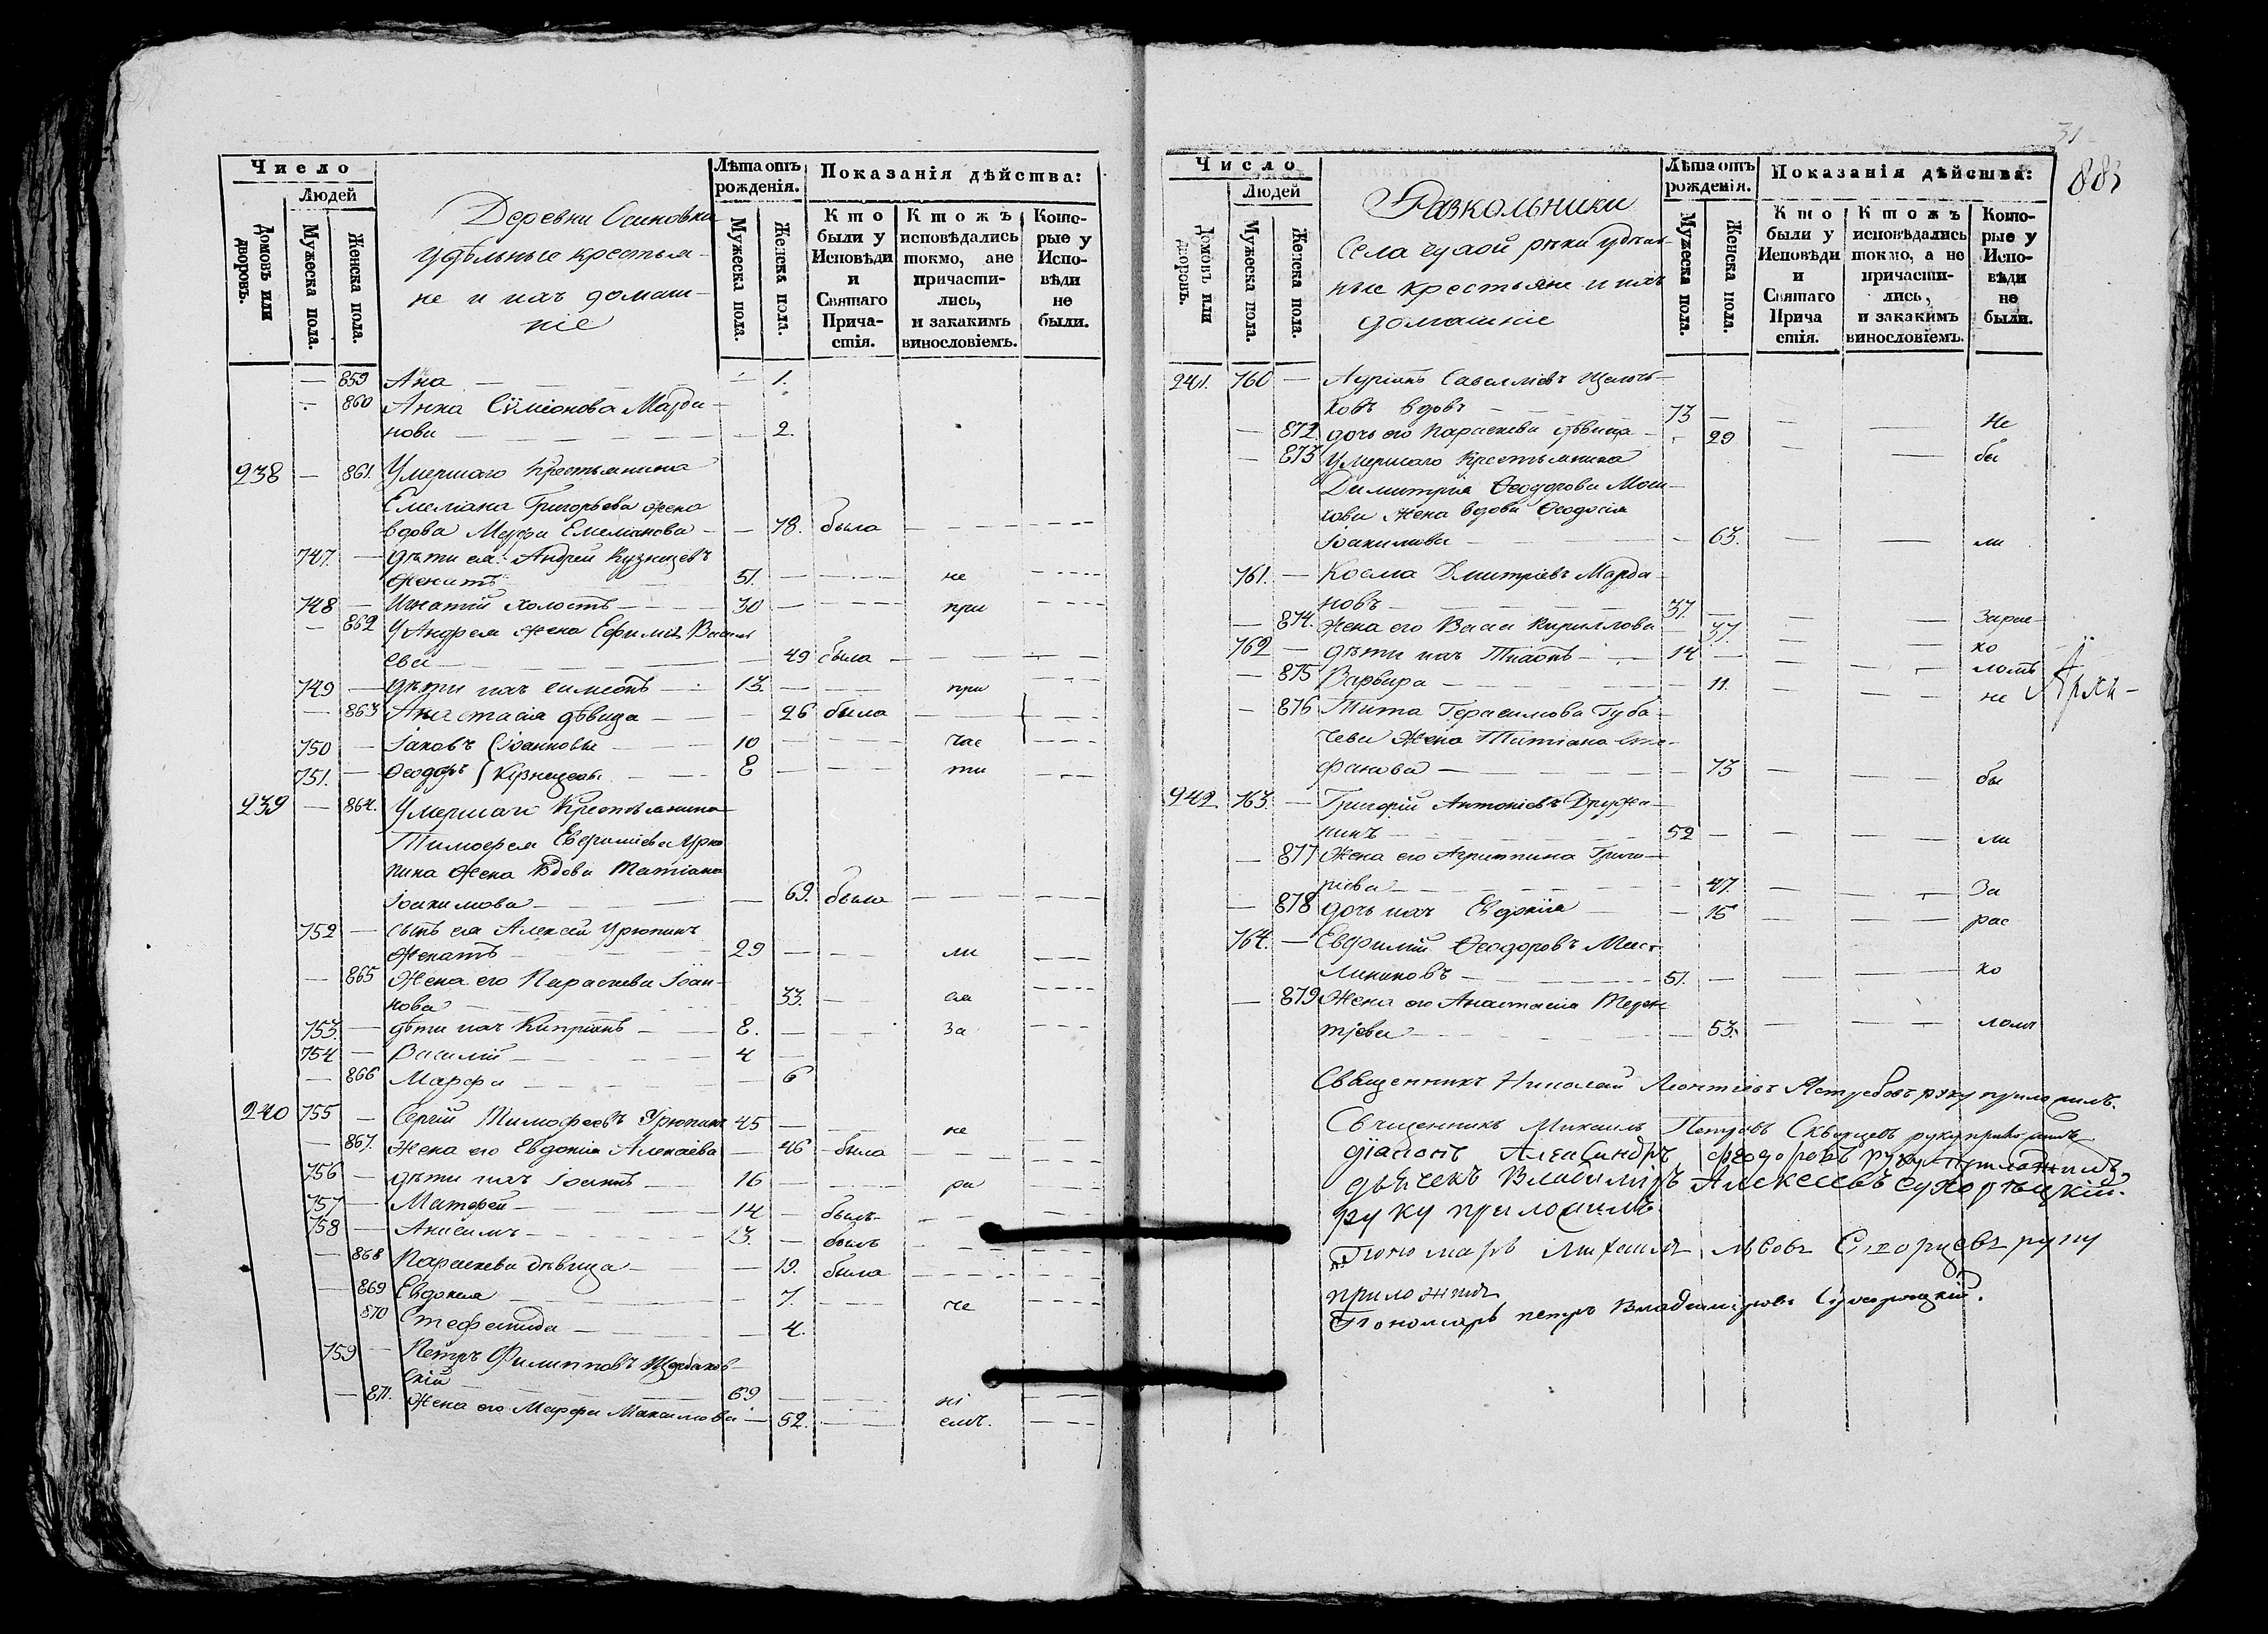 Число
Людей
Домовъ или дворовъ.
Мужеска пола.
Женска пола.
Деревни Осиновки
удѣльные крестья-
не и ихъ домаш-
ніе
Лѣта отъ рожденія.
Мужеска пола.
Женска пола.
Показанія дѣйства:
Кто были у Исповѣди и Святаго Прича-стія.
Ктожъ исповѣдались токмо, а не причасти-лись, и закакимъ винословіемъ.
Кото-рые у Испо-вѣди не были.
— 859 Анна — 1.
860 Анна Сүмеонова Марда-
нова — 2.
238 — 861. Умершаго крестьянина
Емеліана Григорьева жена
вдова Марфа Емеліанова — 78. была
747. — дѣти ея: Андрей Кузнецовъ
женатъ 51. — не
748 — Игнатій холостъ — 30 — при
— 862 У Андрея жена Ефимія Василь
ева — 49 была
749 — дѣти ихъ Симеонъ — 13. — при
— 863 Анастасія дѣвица — 26 была
750 — Іаковъ Іоанновы 10 — час
751. — Ѳеодоръ Кузнецовы 8 — ти
239 — 864. Умершаго крестьянина
Тимофея Евфиміева Урю
пина жена вдова Татіана
Іоакимова — 69. была
752 — сынъ ея Алексей Урюпинъ
женатъ 29 — ли
— 865 Жена его Параскева Іоан-
нова 33. — ся
753. — дѣти ихъ Кипріанъ — 8. — За
754 — Василій — 4
— 866 Марфа — 6
240 755 — Сергій Тимофеевъ Урюпинъ 45 — не
— 867. Жена его Евдокія Алексіева — 46 была
756 — дѣти ихъ Іоаннъ — 16 — ра
757 — Матфей — 14 — былъ
758 — Анисимъ — 13. — былъ
— 868 Параскева дѣвица — 19. была
— 869 Евдокія — 7. — че
870 Стефанида — 4.
759 — Петръ Филипповъ Щербаков-
скій 69 — ні
— 871. Жена его Марфа Максимова — 52. — емъ.
31
883
Число
Людей
Домовъ или дворовъ.
Мужеска пола.
Женска пола.
Разкольники
Села сухой рѣки удѣль-
ные крестьяне и ихъ
домашніе
Лѣта отъ рожденія.
Мужеска пола.
Женска пола.
Показанія дѣйства:
Кто были у Исповѣди и Святаго Прича стія.
Ктожъ исповѣдались токмо, а не причасти-лись, и закакимъ винословіемъ.
Кото-рые у Испо-вѣди не были.
241. 760 — Адріанъ Савелліевъ Щелочь-
ковъ вдовъ 73 — Не
— 872. дочь его Параскева дѣвица — 29
— 873 Умершаго крестьянина бы
Димитрія Ѳеодорова Мош-
кова жена вдова Ѳеодосія
Іоакимова — 63. — ли
761. — Косма Дмитріевъ Марда-
новъ 37. — Зарас-
— 874. Жена его Васса Кириллова 37. — ко
762 — дѣти ихъ Тихонъ — 14 — ломъ
— 875 Варвара — 11. — не
— 876 Тита Герасимова Губа-
чева жена Татіана Сте-
фанова — 73 — бы
242 763. — Григорій Антоніевъ Дружи-
нинъ 52 — ли
— 877 Жена его Агриппина Григо-
ріева — 47. — За
— 878 дочь ихъ Евдокія — 15 — рас
764. — Евфимій Ѳеодоровъ Мас-
лениковъ 51. — ко
— 879 Жена его Анастасія Терен-
тіева — 53. — ломъ
Архи-
Священникъ Николай Леонтіевъ руку приложилъ.
Священникъ Михаилъ Петровъ Скворцовъ руку приложилъ
діаконъ Александръ Феодоровъ руку приложилъ
дьячекъ Владиміръ Алексеевъ Сухорецкій.
руку приложилъ
Пономарь Михаилъ Львовъ Скворцевъ руку
приложилъ
Пономарь петръ Владиміровъ Сухорецкій.